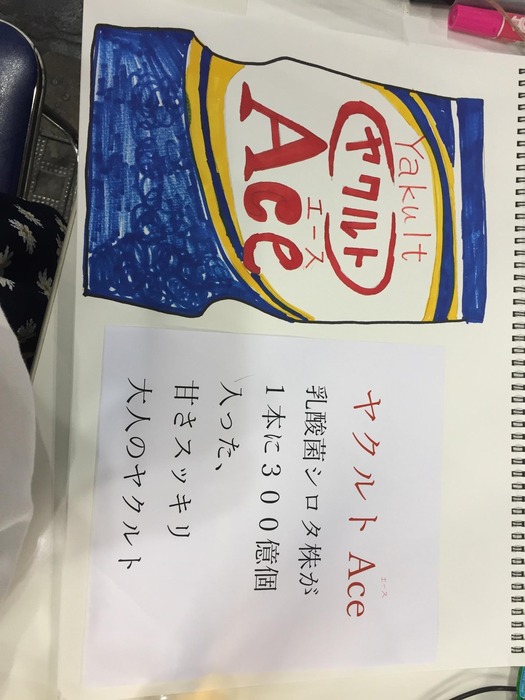 Yakult
ヤクルト
エース
Ace
ヤクルト Ace
エース
乳酸菌シロタ株が
1本に300億個
入った、
甘さスッキリ
大人のヤクルト